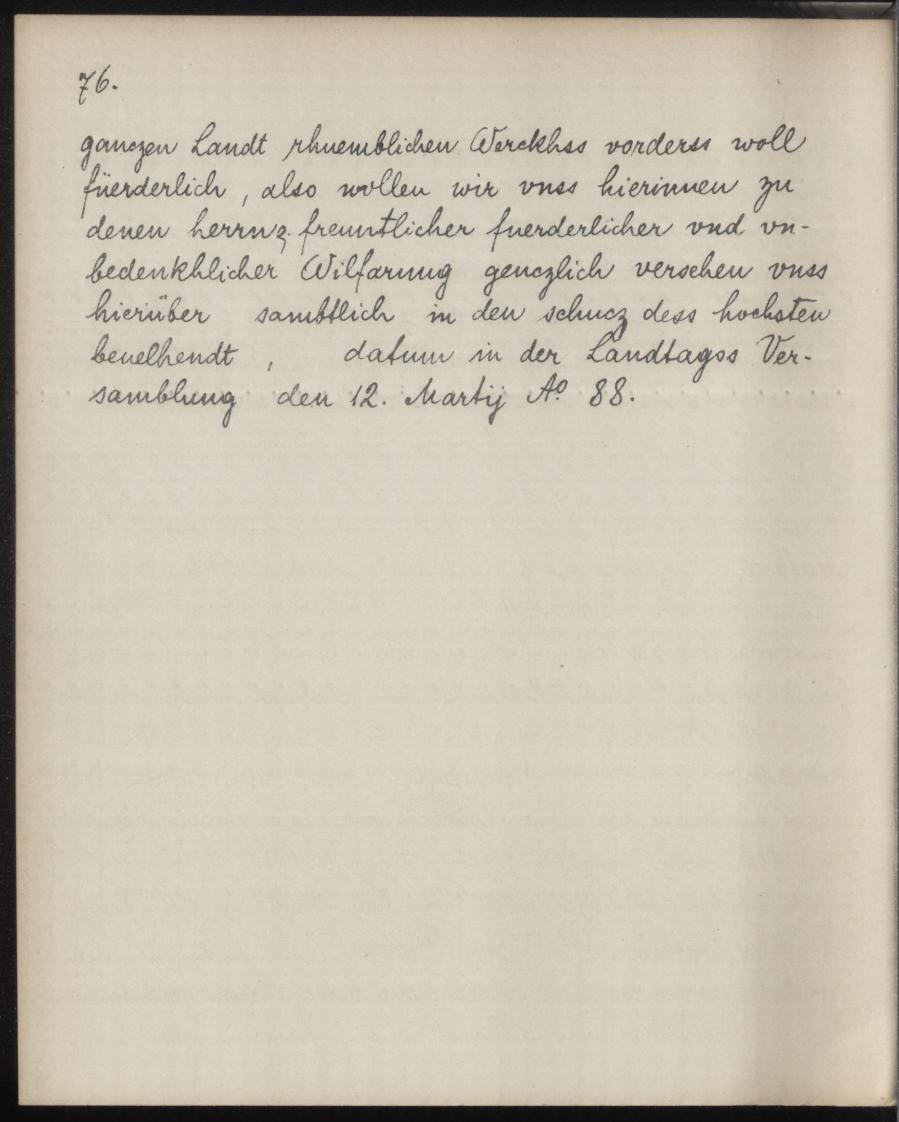 76.
ganczen Landt rhuemblichen Werckhss vorderss woll
füerderlich, also wollen wir vnss hierinnen zu
denen herrnz. freuntlicher fuerderlicher vnd vn-
bedenkhlicher Wilfarung genczlich versehen vnss
hierüber sambtlich in den schucz dess hochsten
beuelhendt, datum in der Landtagss Ver-
samblung den 12. Martij Aº 88.